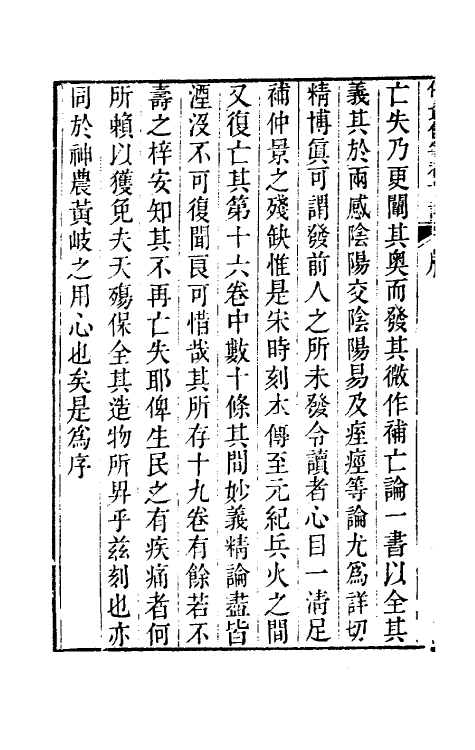 亡失乃更闡其奧而發其微作補亡論一書以全其
義其於兩感陰陽交陰陽易及痓痙等論尤爲詳切
精博眞可謂發前人之所未發令讀者心目一淸足
補仲景之殘缺惟是宋時刻本傳至元紀兵火之間
又復亡其第十六卷中數十條其間妙義精論盡皆
湮沒不可復聞良可惜哉其所存十九卷有餘若不
壽之梓安知其不再亡失耶俾生民之有疾痛者何
所賴以獲免夫夭殤保全其造物所畀乎茲刻也亦
同於神農黃岐之用心也矣是爲序